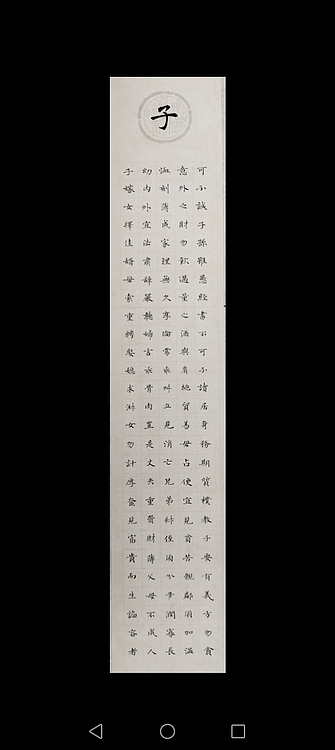 子
可不誠子孫雖愚經書不可不讀居身務期質樸教子要有義方勿貪
意外之財勿飲過量之酒與肩挑貿易毋占便宜見貧苦親鄰須加溫
恤刻薄成家理無久享倫常乖舛立見消亡兄弟叔侄須分多潤寡長
幼內外宜法肅辭嚴聽婦言乖骨肉豈是丈夫重貲財薄父母不成人
子嫁女擇佳婿毋索重聘娶媳求淑女勿計厚奩見富貴而生諂容者